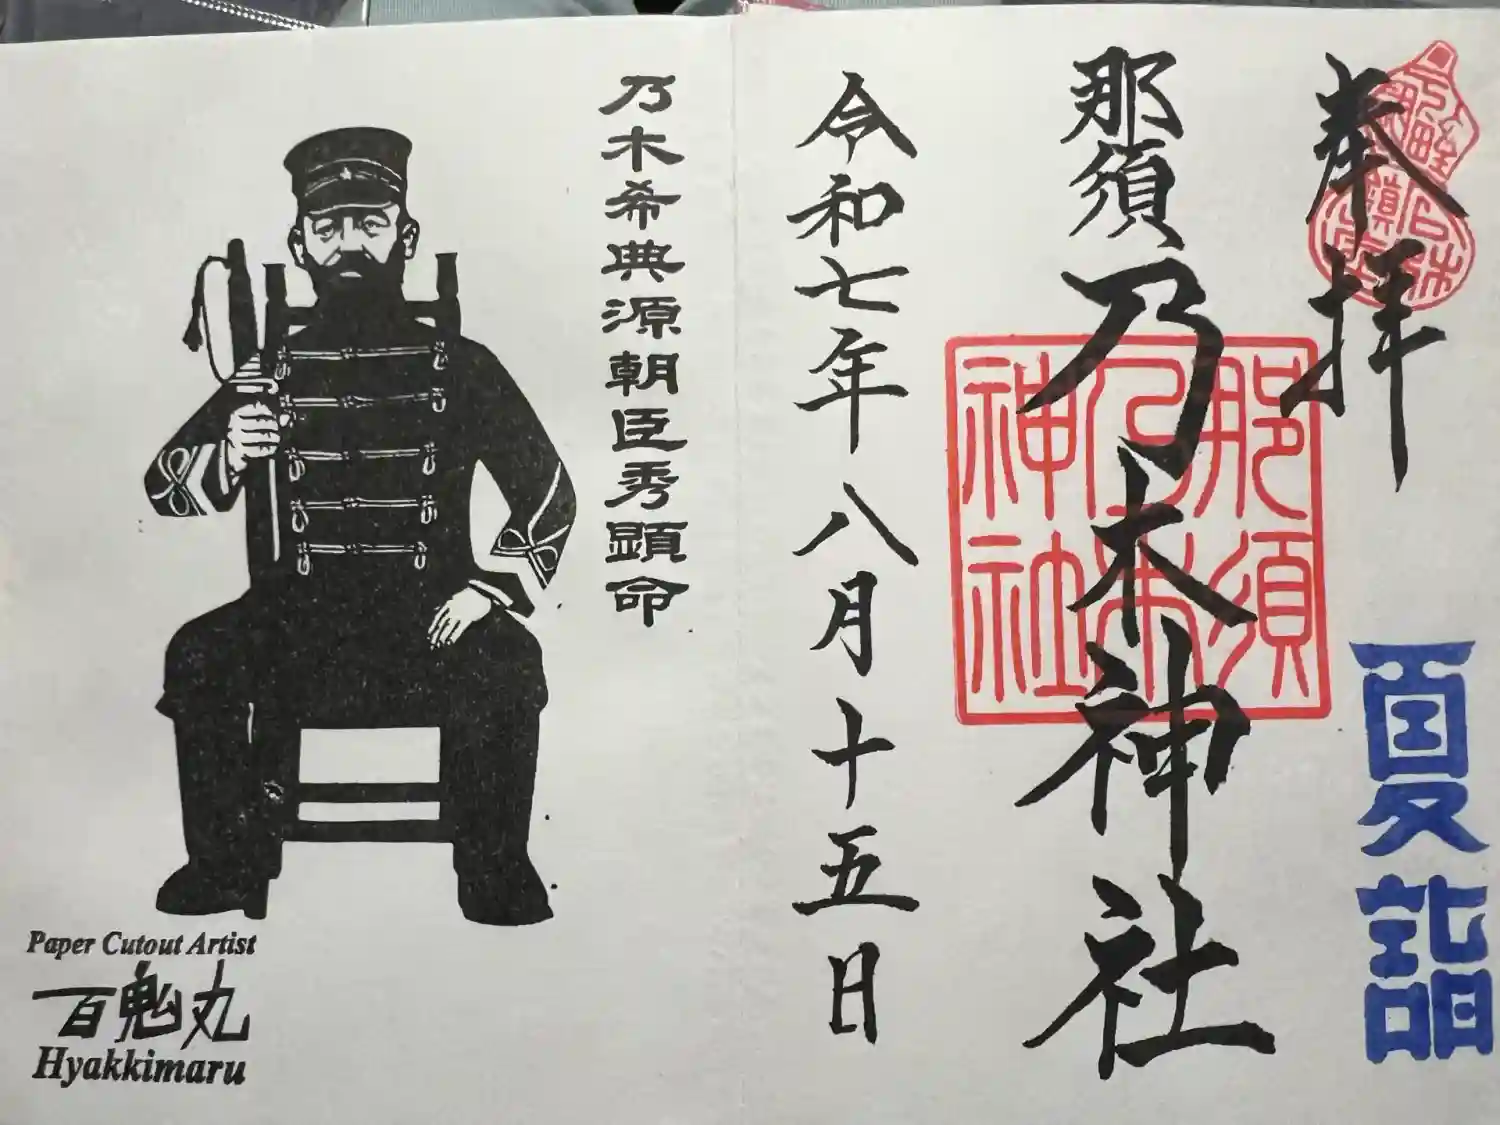 奉拝
夏詣
那須乃木神社
那須
乃木
神社
令和七年八月十五日
乃木希典源朝臣秀顕命
Paper Cutout Artist
百鬼丸
Hyakkimaru